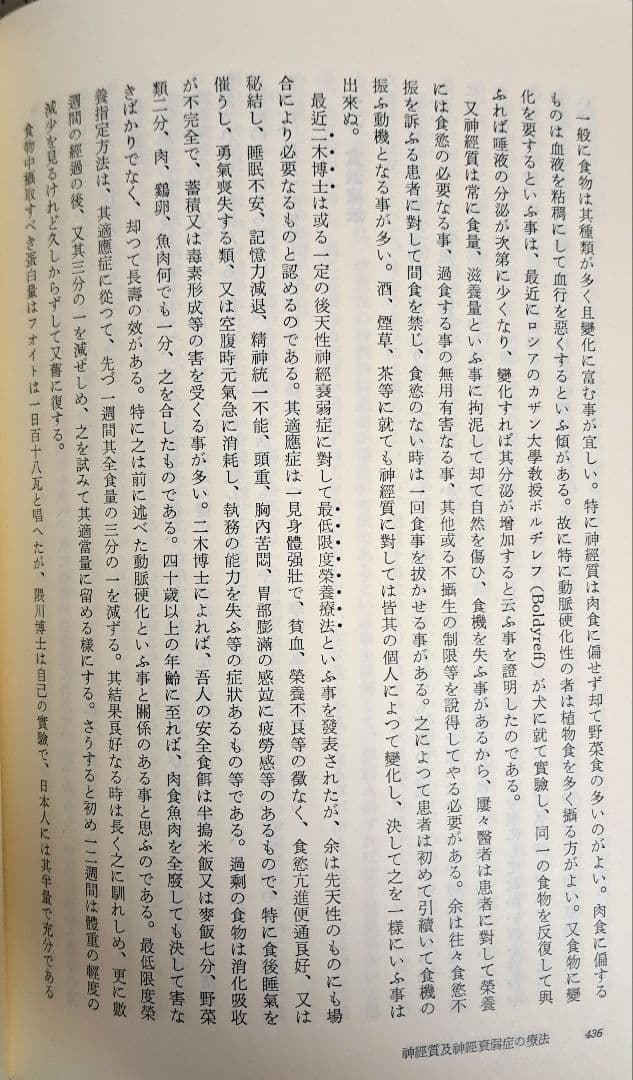 一般に食物は其種類が多く且變化に富む事が宜しい。特に神經質は肉食に偏せず却て野菜食の多いのがよい。肉食に偏する
ものは血液を粘稠にして血行を惡くするといふ傾がある。故に特に動脈硬化性の者は植物食を多く攝る方がよい。又食物に變
化を要するといふ事は、最近にロシアのカザン大學教授ボルヂレフ（Boldyreff）が犬に就て實驗し、同一の食物を反復して與
ふれば唾液の分泌が次第に少くなり、變化すれば其分泌が增加すると云ふ事を證明したのである。
又神經質は常に食量、滋養量といふ事に拘泥して却て自然を傷ひ、食機を失ふ事があるから、屢々醫者は患者に對して榮養
には食慾の必要なる事、過食する事の無用有害なる事、其他或る不攝生の制限等を說得してやる必要がある。余は往々食慾不
振を訴ふる患者に對して間食を禁じ、食慾のない時は一回食事を拔かせる事がある。之によつて患者は初めて引續いて食機の
振ふ動機となる事が多い。酒、煙草、茶等に就ても神經質に對しては皆其の個人によつて變化し、決して之を一樣にいふ事は
出來ぬ。
最近二木博士は或る一定の後天性神經衰弱症に對して最低限度榮養療法といふ事を發表されたが、余は先天性のものにも場
合により必要なるものと認めるのである。其適應症は一見身體强壯で、貧血、榮養不良等の徵なく、食慾亢進便通良好、又は
秘結し、睡眠不安、記憶力減退、精神統一不能、頭重、胸內苦悶、胃部膨滿の感竝に疲勞感等のあるもので、特に食後睡氣を
催うし、勇氣喪失する類、又は空腹時元氣急に消耗し、執務の能力を失ふ等の症狀あるもの等である。過剩の食物は消化吸收
が不完全で、蓄積又は毒素形成等の害を受くる事が多い。二木博士によれば、吾人の安全食餌は半搗米飯又は麥飯七分、野菜
類二分、肉、鷄卵、魚肉何でも一分、之を合したものである。四十歲以上の年齡に至れば、肉食魚肉を全廢しても決して害な
きばかりでなく、却つて長壽の效がある。特に之は前に述べた動脈硬化といふ事と關係のある事と思ふのである。最低限度榮
養指定方法は、其適應症に從つて、先づ一週間其全食量の三分の一を減ずる。其結果良好なる時は長く之に馴れしめ、更に數
週間の經過の後、又其三分の一を減ぜしめ、之を試みて其適當量に留める樣にする。さうすると初め一二週間は體重の輕度の
減少を見るけれど久しからずして又舊に復する。
食物中攝取すべき蛋白量はフォイトは一日百十八瓦と唱へたが、隈川博士は自己の實驗で、日本人には其半量で充分である
神經質及神經衰弱症の療法
436